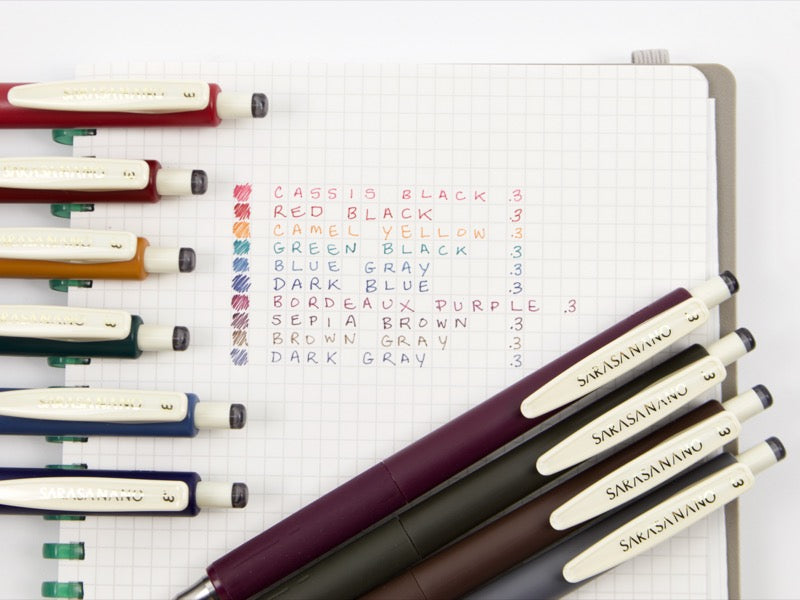 SARASA NANO .3
SARASA NANO .3
SARASA NANO .3
SARASA NANO .3
SARASA NANO .3
SARASA NANO .3
CASSIS BLACK .3
RED BLACK .3
CAMEL YELLOW .3
GREEN BLACK .3
BLUE GRAY .3
DARK BLUE .3
BORDEAUX PURPLE .3
SEPIA BROWN .3
BROWN GRAY .3
DARK GRAY .3
SARASA NANO .3
SARASA NANO .3
SARASA NANO .3
SARASA NANO .3